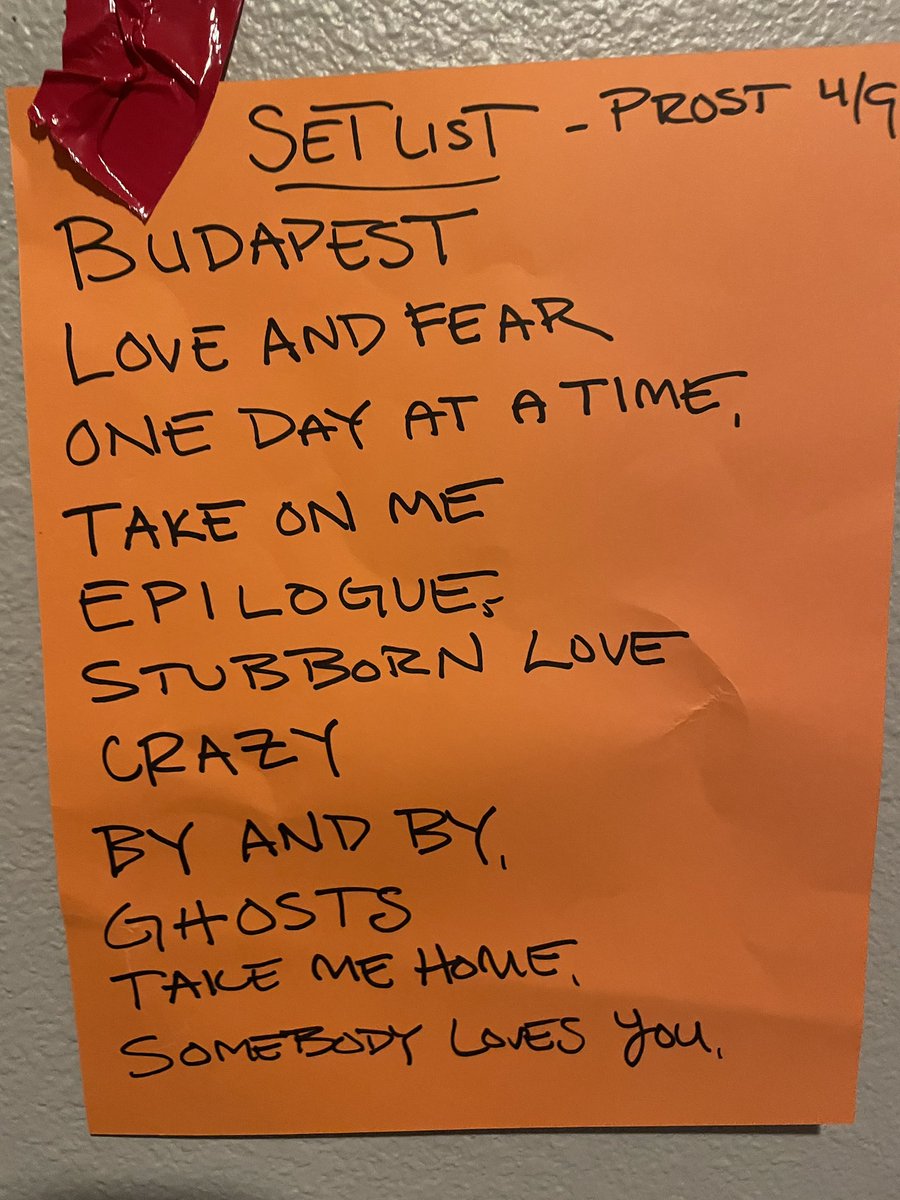 SET LIST - PROST 4/9
BUDAPEST
LOVE AND FEAR
ONE DAY AT A TIME,
TAKE ON ME
EPILOGUE,
STUBBORN LOVE
CRAZY
BY AND BY,
GHOSTS
TAKE ME HOME,
SOMEBODY LOVES YOU,